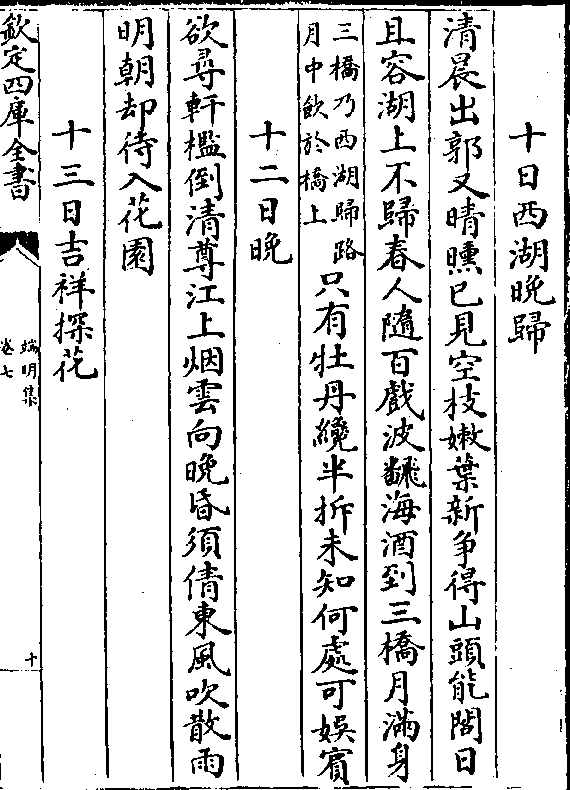 十日西湖晚歸
清晨出郭又晴曛已見空枝嫩葉新争得山頭能閣日
且容湖上不歸春人隨百戲波翻海酒到三橋月滿身
三橋乃西湖歸路
月中飲於橋上
只有牡丹纔半拆未知何處可娛賓
十二日晚
欲尋軒檻倒清尊江上烟雲向晚昏須倩東風吹散雨
明朝却待入花園
十三日吉祥探花
欽定四庫全書
端明集
卷七
十